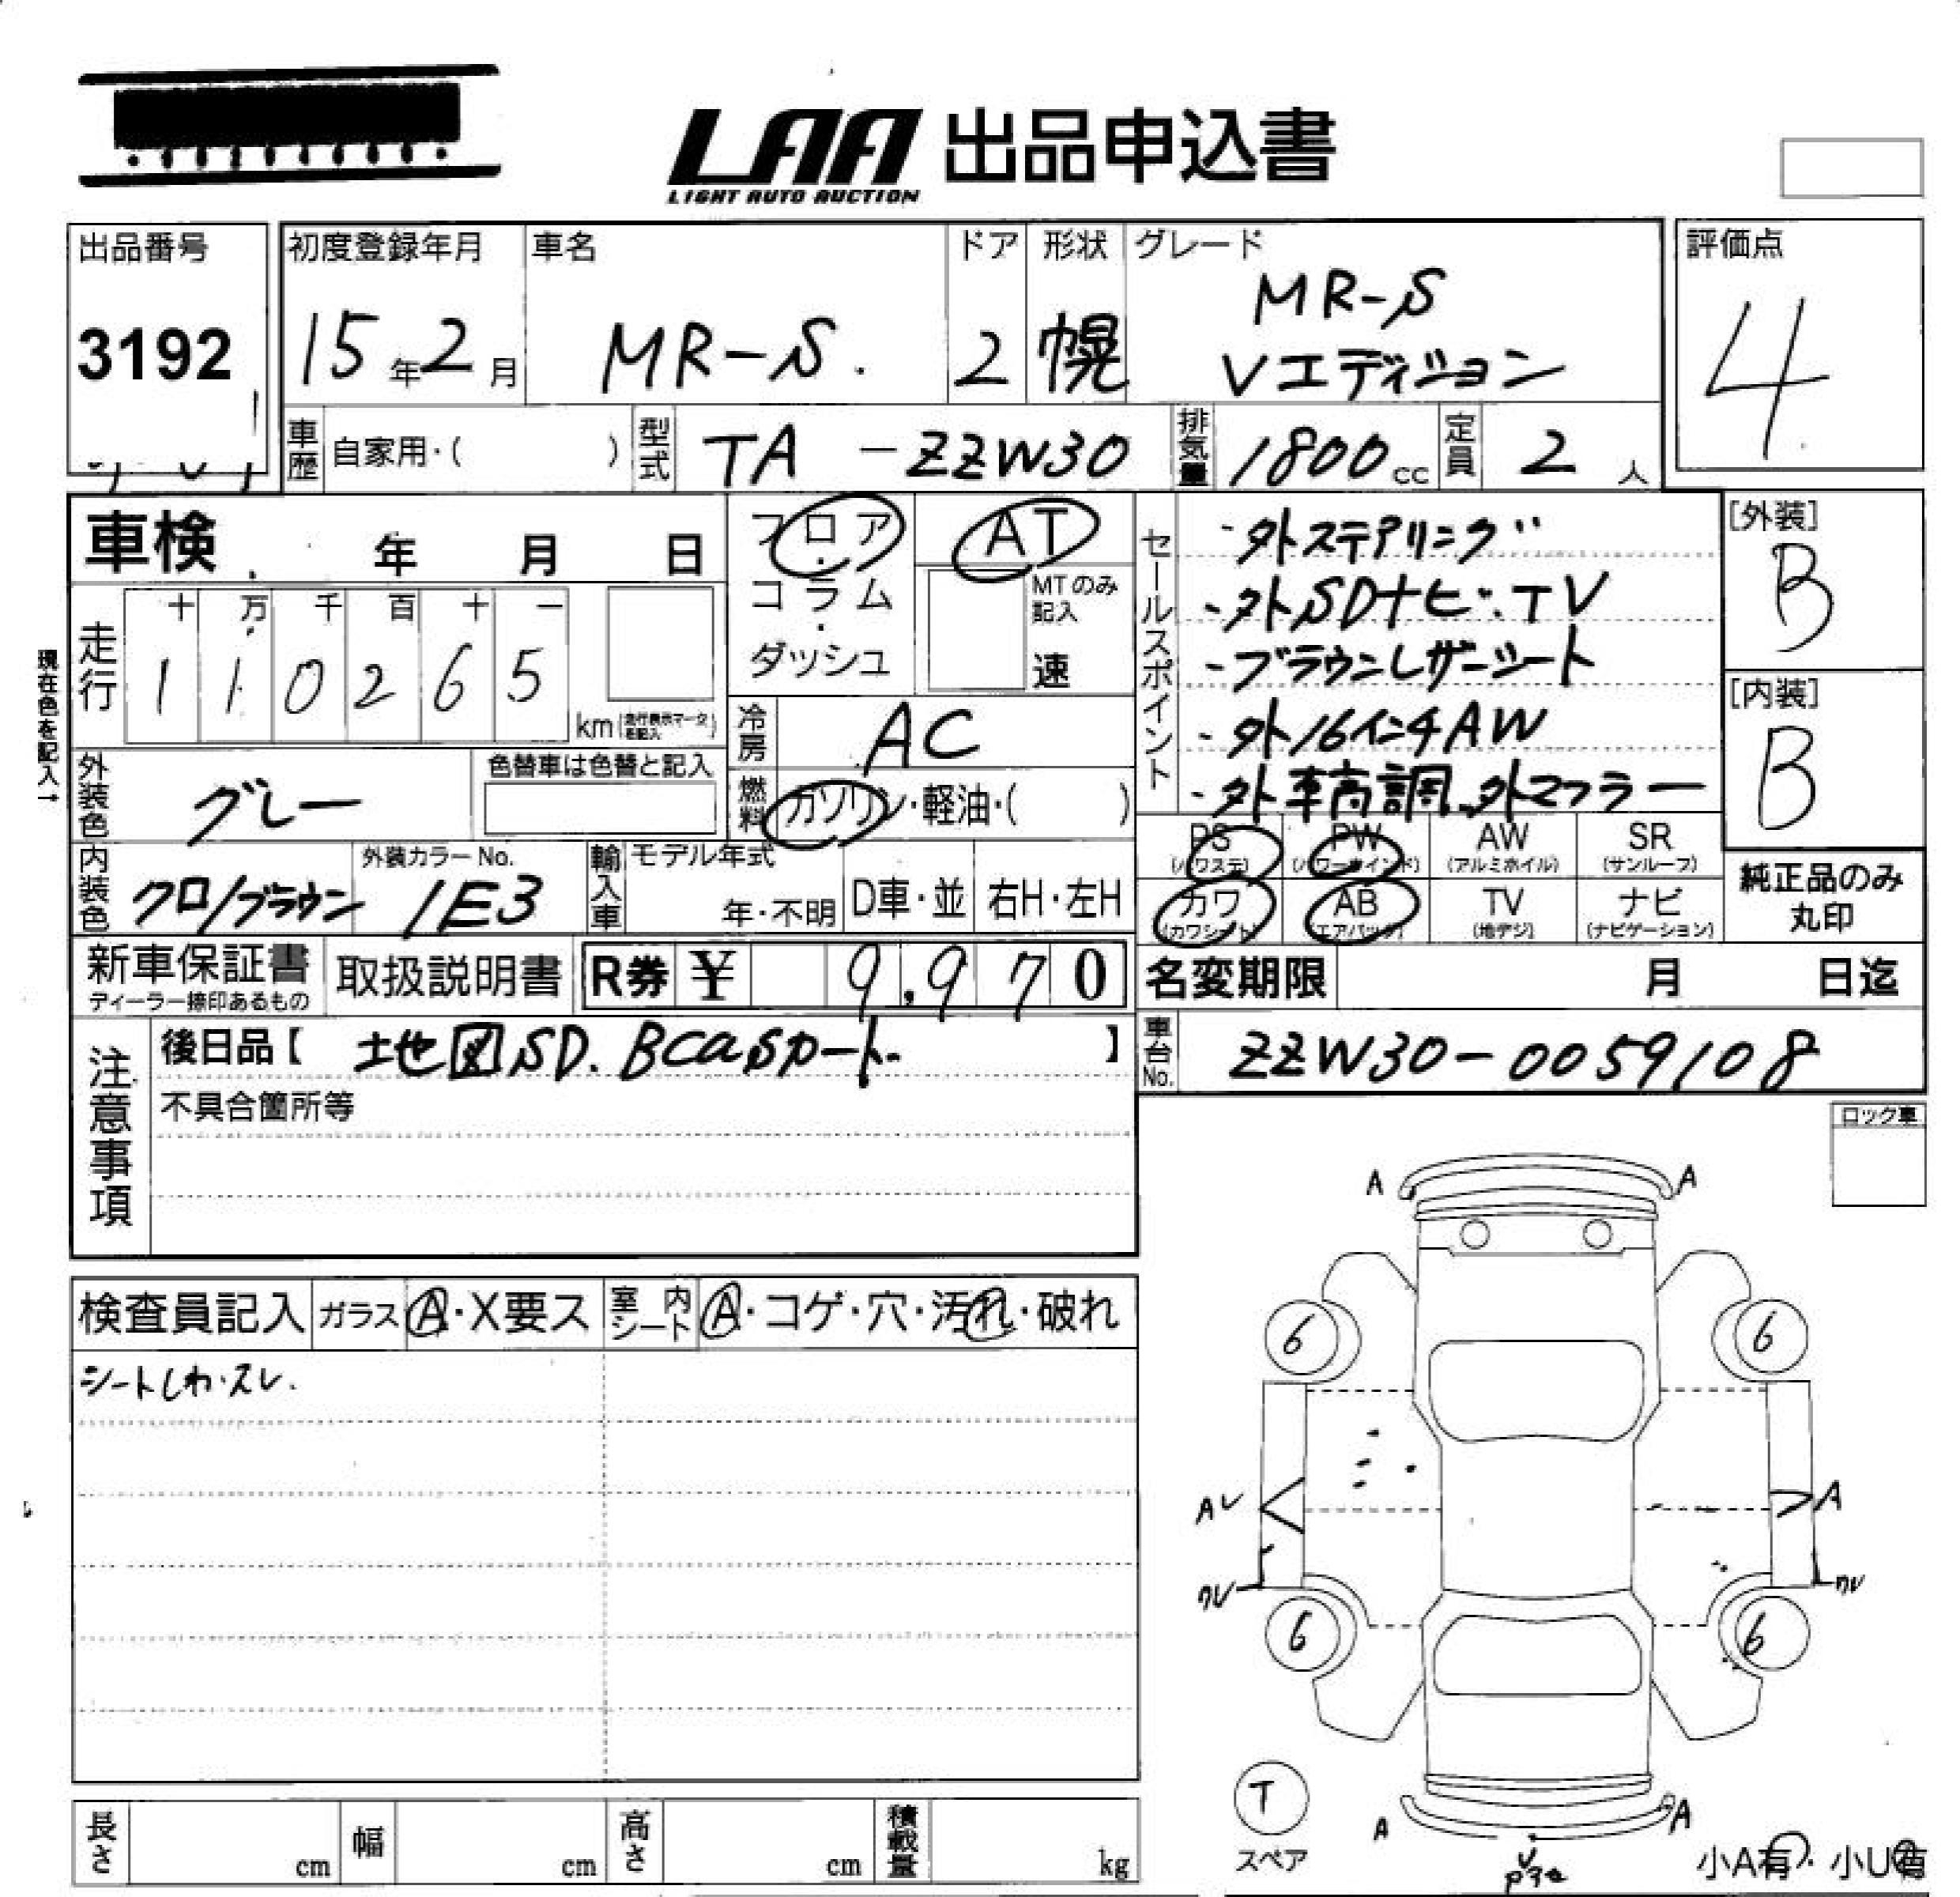 LAA 出品申込書
LIGHT AUTO AUCTION
出品番号
3192
初度登録年月
15年2月
車名
MR-S.
ドア
2
形状
幌
グレード
MR-S
Vエディション
評価点
4
車歴 自家用・( )
型式 TA-ZZW30
排気量 1800cc
定員 2人
車検 年 月 日
走行
十 万 千 百 十 一
1 1 0 2 6 5
km(走行表示マークを記入)
現在色を記入→
フロア・コラム・ダッシュ
AT
MTのみ記入
速
冷房 AC
燃料 ガソリン・軽油・( )
外装色 グレー
色替車は色替と記入
内装色 クロ/ブラウン
外装カラーNo.
1E3
輸入車 モデル年式
年・不明
D車・並
右H・左H
セールスポイント
・外ステアリング
・外SDナビ・TV
・ブラウンレザーシート
・外16インチAW
・外車高調、外マフラー
[外装]
B
[内装]
B
PS
(パワステ)
PW
(パワーウインド)
AW
(アルミホイル)
SR
(サンルーフ)
カワ
(カワシート)
AB
(エアバック)
TV
(地デジ)
ナビ
(ナビゲーション)
純正品のみ
丸印
新車保証書
ディーラー捺印あるもの
取扱説明書
R券 ¥ 9,970
名変期限 月 日迄
注意事項
後日品【 地図SD. BCaSカード 】
不具合箇所等
車台No. ZZW30-0059108
ロック車
検査員記入
ガラス A・X要ス
室内シート A・コゲ・穴・汚れ・破れ
シートしわ・スレ.
A A
6 6
A A
6 6
T
スペア
A A
小A有・小U有
長さ cm
幅 cm
高さ cm
積載量 kg